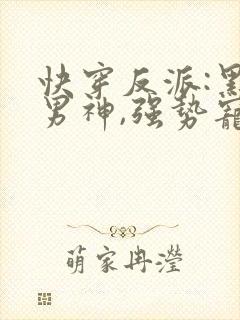 快穿反派:黑
男神,强势寵
萌家冉瀅